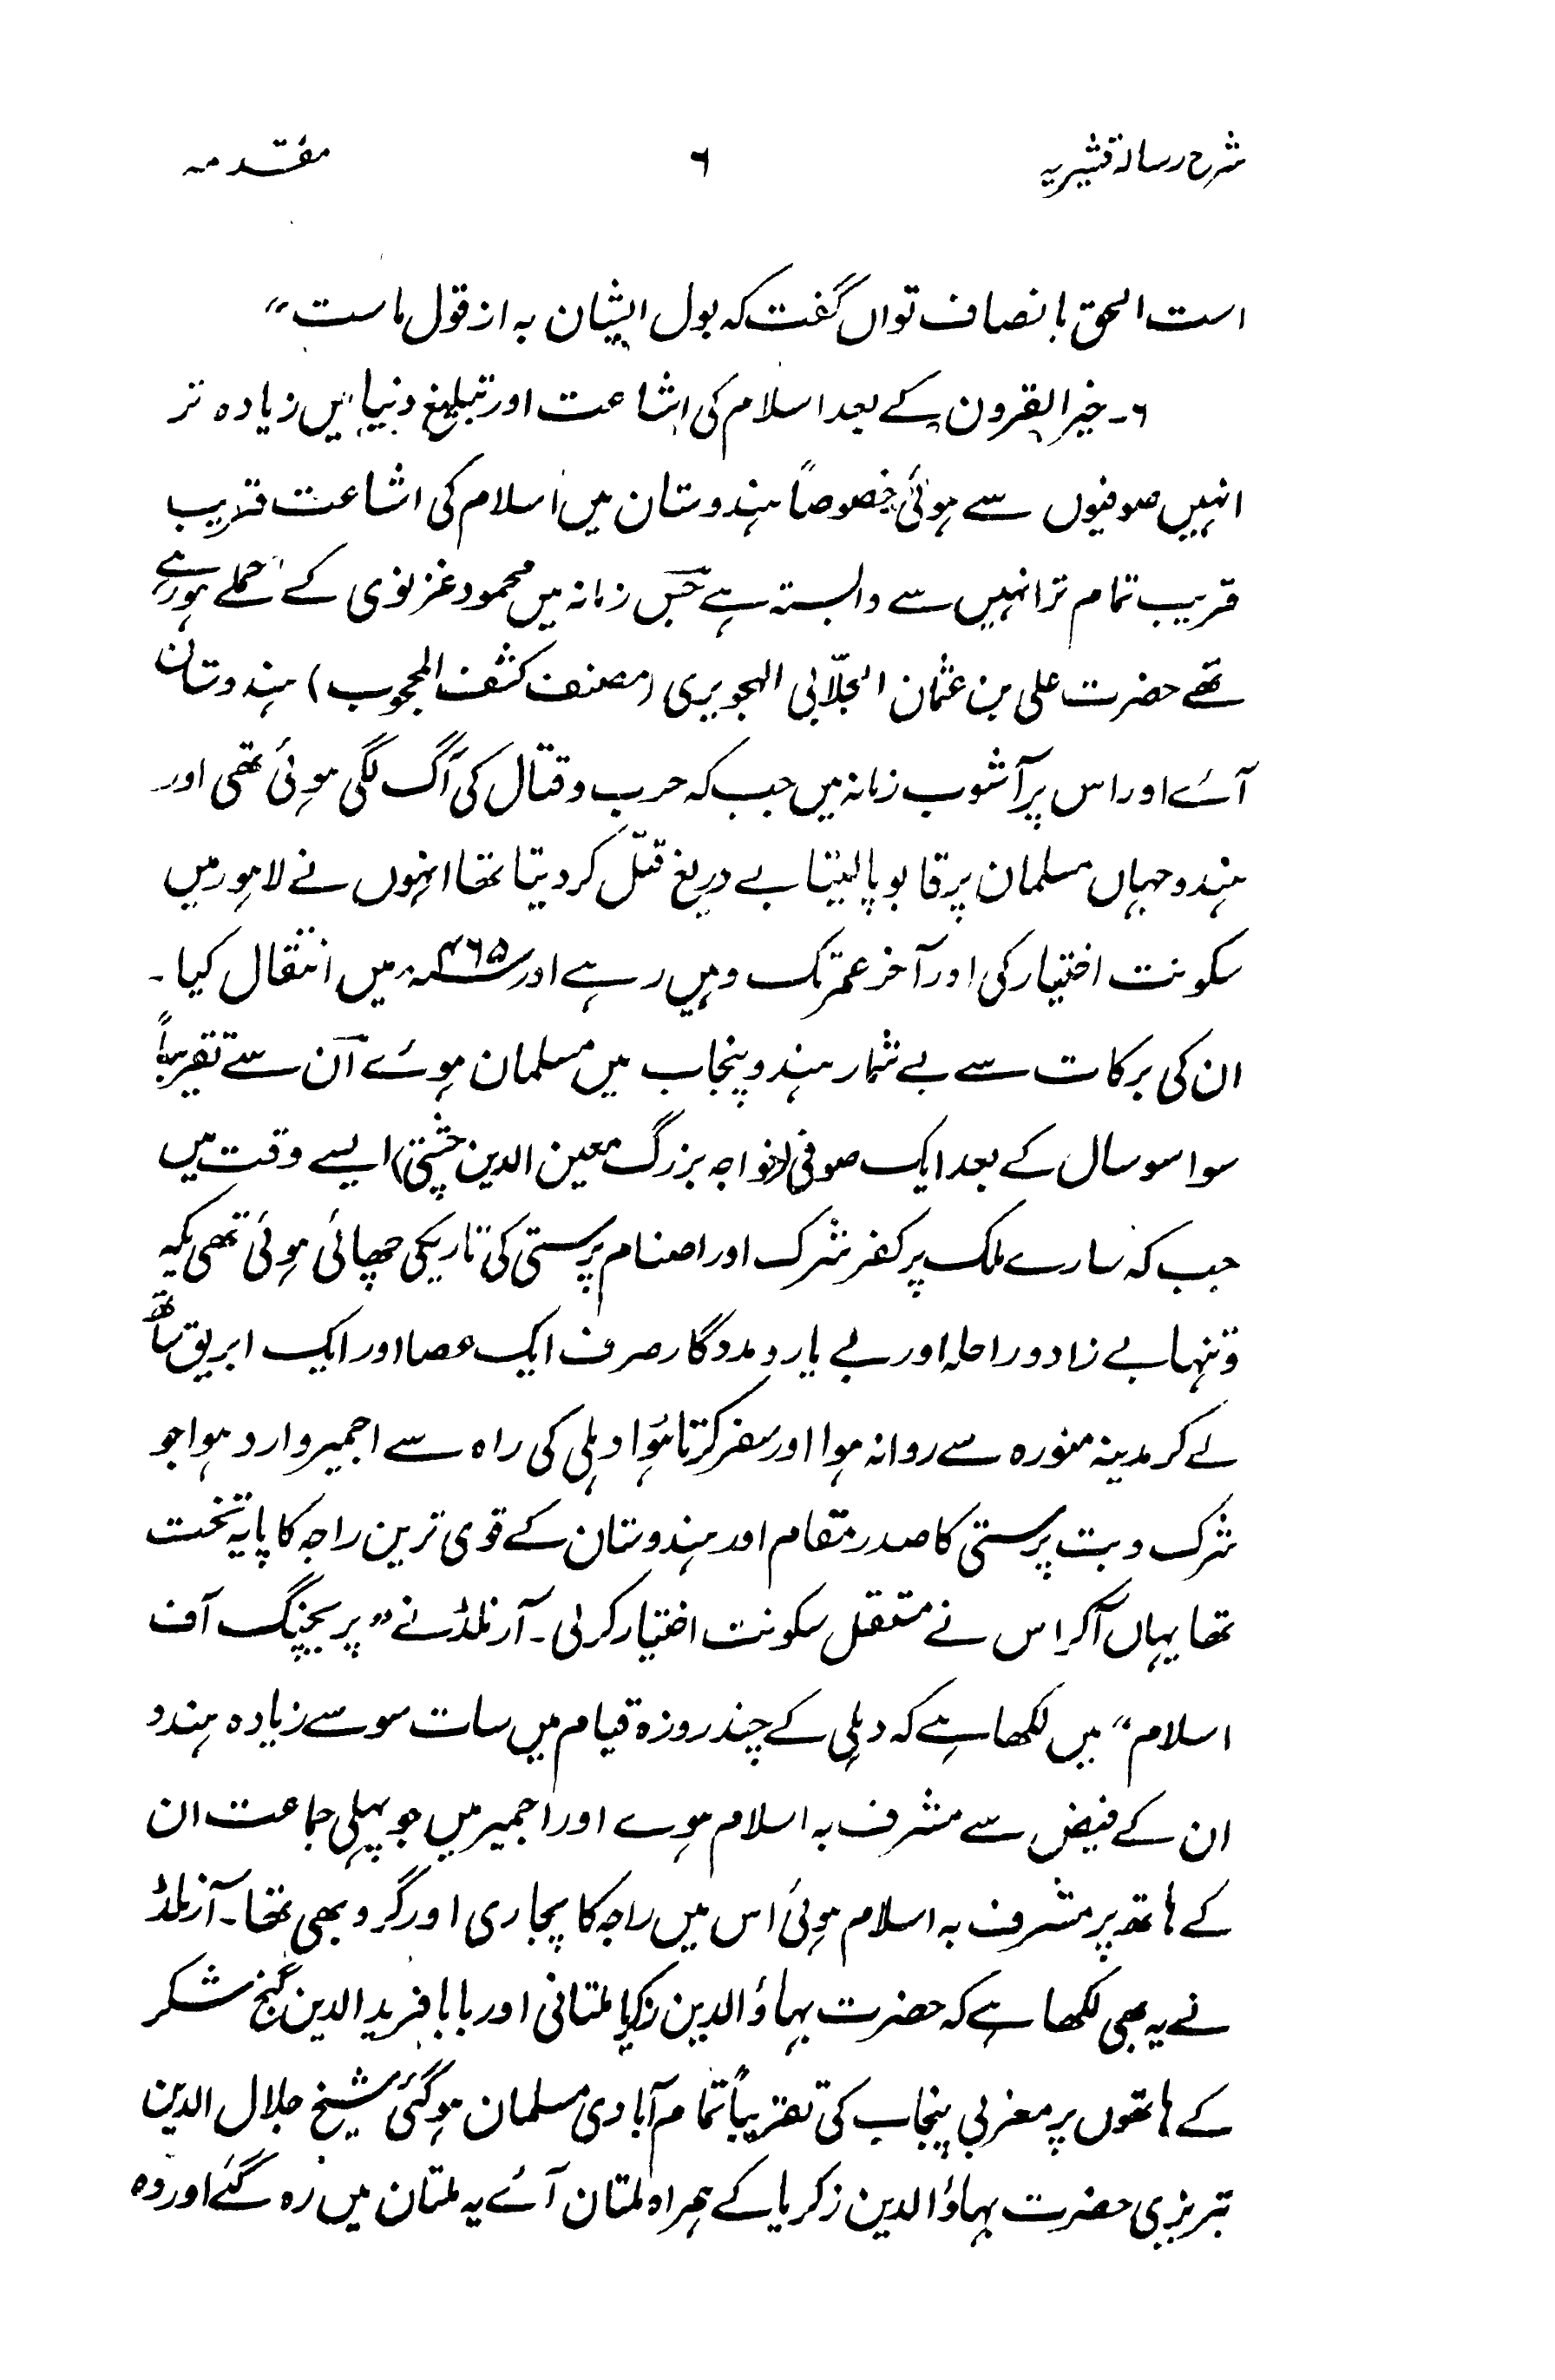 شرح رسالہ قشیریہ ۶ مقدمہ
است الحق بانصاف تواں گفت کہ بول ایشان بہ از قول ماست”
۶۔ خیر القرون کے بعد اسلام کی اشاعت اور تبلیغ دنیا میں زیادہ تر
انہیں صوفیوں سے ہوئی خصوصاً ہندوستان میں اسلام کی اشاعت قریب
قریب تمام تر انہیں سے وابستہ ہے جس زمانہ میں محمود غزنوی کے حملے ہورہے
تھے حضرت علی بن عثمان الجلّابی الہجویری (مصنف کشف المحجوب) ہندوستان
آئے اور اس پرآشوب زمانہ میں جب کہ حرب و قتال کی آگ لگی ہوئی تھی اور
ہندو جہاں مسلمان پر قابو پالیتا بے دریغ قتل کر دیتا تھا انہوں نے لاہور میں
سکونت اختیار کی اور آخر عمر تک وہیں رہے اور ۴۶۵؁ھ میں انتقال کیا۔
ان کی برکات سے بے شمار ہندو پنجاب میں مسلمان ہوئے ان سے تقریباً
سوا سو سال کے بعد ایک صوفی (خواجہ بزرگ معین الدین چشتی) ایسے وقت میں
جب کہ سارے ملک پر کفر شرک اور اصنام پرستی کی تاریکی چھائی ہوئی تھی یکہ
و تنہا بے زاد و راحلہ اور بے یار و مددگار صرف ایک عصا اور ایک ابریق ساتھ
لے کر مدینہ منورہ سے روانہ ہوا اور سفر کرتا ہوُا دہلی کی راہ سے اجمیر وارد ہوا جو
شرک و بت پرستی کا صدر مقام اور ہندوستان کے قوی ترین راجہ کا پایہ تخت
تھا یہاں آکر اس نے مستقل سکونت اختیار کرلی۔ آرنلڈ نے “پریچنگ آف
اسلام” میں لکھا ہے کہ دہلی کے چند روزہ قیام میں سات سو سے زیادہ ہندو
ان کے فیض سے مشرف بہ اسلام ہوے اور اجمیر میں جو پہلی جماعت ان
کے ہاتھ پر مشرف بہ اسلام ہوئی اس میں راجہ کا پجاری اور گرو بھی تھا۔ آرنلڈ
نے یہ بھی لکھا ہے کہ حضرت بہاؤالدین زکریا ملتانی اور بابا فرید الدین گنج شکر
کے ہاتھوں پر مغربی پنجاب کی تقریباً تمام آبادی مسلمان ہوگئی شیخ جلال الدین
تبریزی حضرت بہاؤالدین زکریا کے ہمراہ ملتان آئے یہ ملتان میں رہ گئے اور وہ